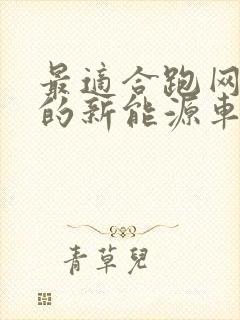 最適合跑网
的新能源車
青草兒